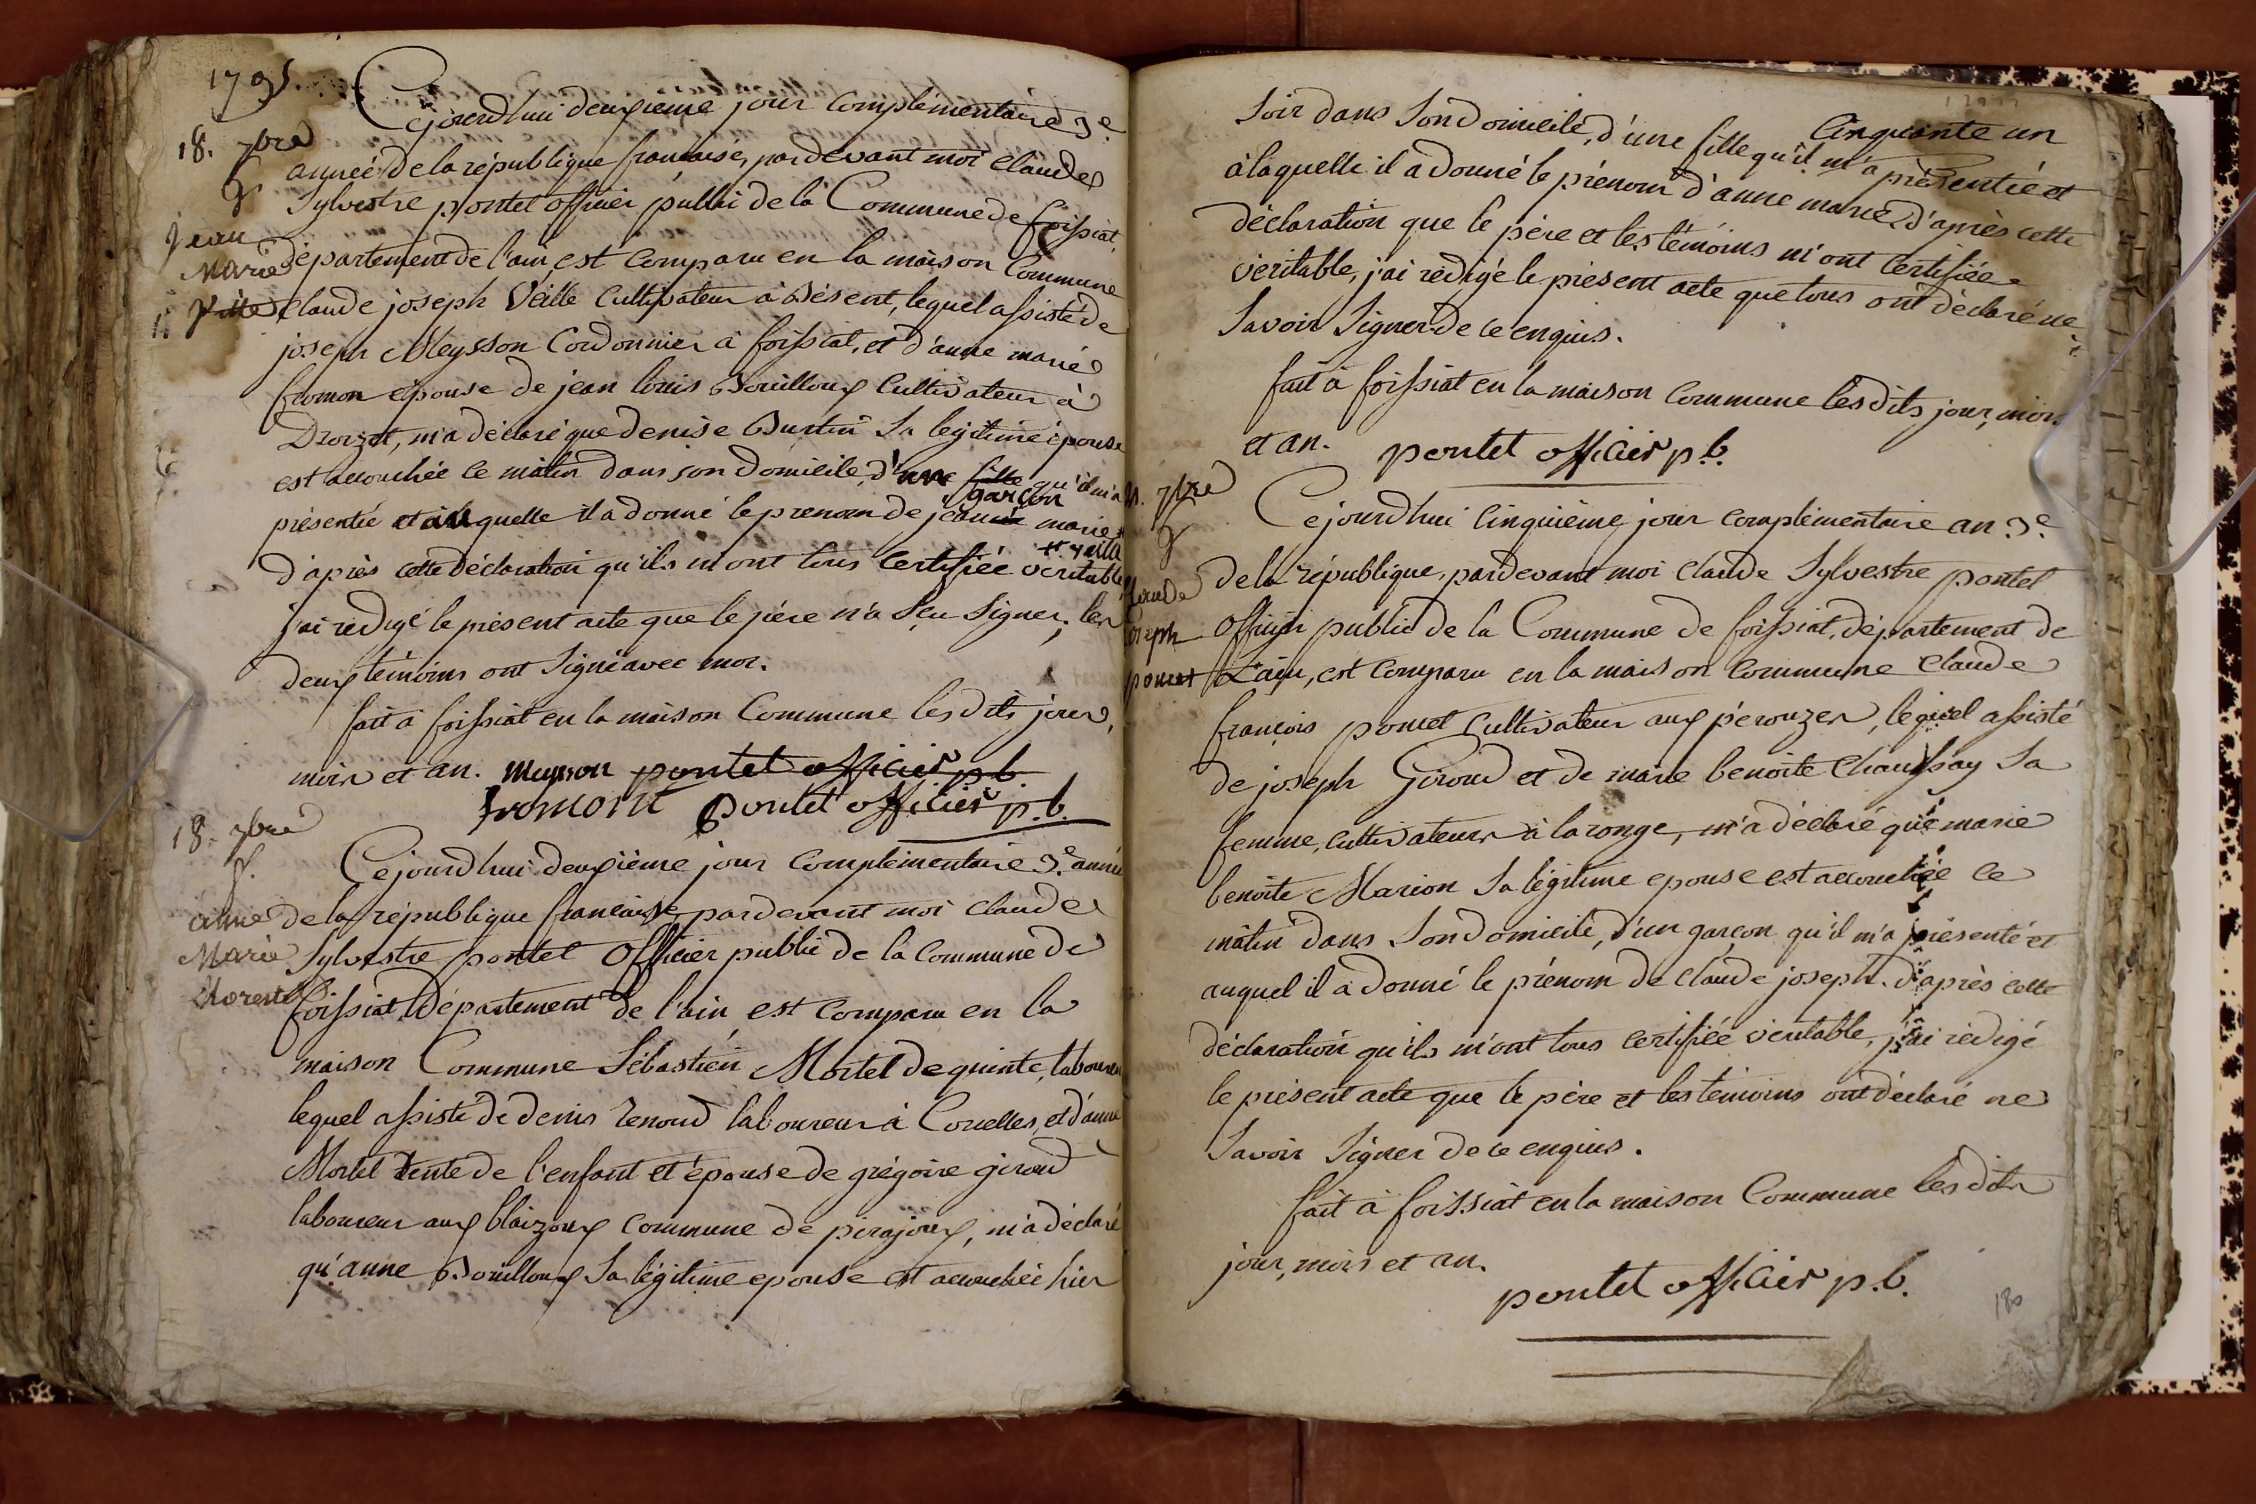 1795.
18. 7bre
Jean
Marie
Cejourdhui deuxieme jour complémentaire 3e
année de la république française, pardevant moi Claude
Sylvestre pontet officier public de la Commune de foissiat,
département de l'ain est comparu en la maison Commune
Claude joseph Veille Cultivateur à Désent, lequel assisté de
joseph Meysson Cordonnier à foissiat, et d'anne marie
fromon epouse de jean louis Bouilloux Cultivateur à
m'a déclaré que denise Burtin Sa légitime épouse
est accouchée ce matin dans son domicile, d'un fille garçon qu'il m'a
présentée et auquelle il a donné le prenom de jean marie
d'après cette déclaration qu'ils m'ont tous certifiée véritable,
j'ai rédigé le présent acte que le père n'a Sçu Signer, les
deux témoins ont Signé avec moi.
fait à foissiat en la maison Commune lesdits jour,
mois et an. meysson pontet officier p.b.
fromont pontet officier p.b.
18. 7bre
anne
Marie
Cejourdhui deuxième jour complémentaire 3e. année
de la république française, pardevant moi claude
Sylvestre pontet Officier public de la commune de
foissiat, département de l'ain est comparu en la
maison Commune Sébastien Mortel de quinte, laboureur
lequel assisté de denis renoud laboureur à Corcelles, et d'anne
Mortel tente de l'enfant et épouse de grégoire giroud
laboureur aux blaizoux commune de pirajoux, m'a déclaré
qu'anne Bouilloux Sa légitime epouse est accouchée hier
Cinquante un
Soir dans Son domicile, d'une fille qu'il m'a présentée et
à laquelle il a donné le prénom d'anne marie, d'après cette
déclaration que le père et les témoins m'ont certifiée
véritable, j'ai rédigé le présent acte que tous ont déclaré ne
Savoir Signer de ce enquis.
fait à foissiat en la maison Commune lesdits jour, mois
et an. pontet officier p.b.
7bre
Claude
joseph
poncet
Cejourdhui Cinquième jour complémentaire an 3e.
de la république, pardevant moi claude Sylvestre pontet
Officier public de la Commune de foissiat, département de
L'ain, est comparu en la maison commune Claude
françois poncet Cultivateur aux pérouzes, lequel assisté
de joseph Giroud et de marie benoite Chaussay Sa
femme, cultivateurs à la ronge, m'a déclaré que marie
benoite Marion Sa légitime epouse est accouchée ce
matin dans Son domicile, d'un garçon qu'il m'a présenté et
auquel il a donné le prénom de claude joseph. d'après cette
déclaration qu'ils m'ont tous certifiée véritable, j'ai rédigé
le présent acte que le père et les témoins ont déclaré ne
Savoir Signer de ce enquis.
fait à foissiat en la maison Commune lesdits
jour, mois et an.
pontet officier p.b.
180